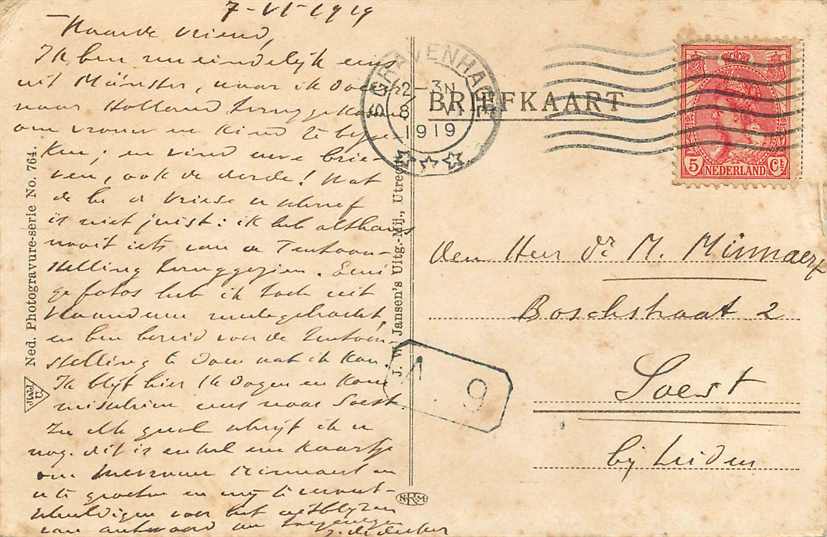 7-VI-1919
Waarde vriend,
Ik ben nu eindelijk eens
uit Münster, waar ik
naar Holland terug
om vrouw en kind te
ken; en vind uwe brie-
ven, ook de derde! Wat
de hr de Vriese u schreef
is niet juist: ik heb althans
nooit iets van de Tentoon-
stelling teruggezien. Eenige
foto's heb ik toch uit
Vlaanderen meêgebracht,
en ben bereid voor de tentoon-
stelling te doen wat ik kan.
Ik blijf hier 14 dagen en kom
misschien eens naar Soest.
In elk geval schrijf ik u
nog. dit is enkel een kaartje
om Mevrouw Minnaert en
u te groeten en mij te veront-
schuldigen voor het uitblijven
van antwoord
Ned. Photogravure-serie No. 764.
J. W. Jansen's Uitg.-Mij., Utrecht
'S GRAVENHAGE
12-3N
8 VI
1919
BRIEFKAART
5 Ct
NEDERLAND
den Heer Dr M. Minnaert
Boschstraat 2
Soest
bij Leiden
9
NRM